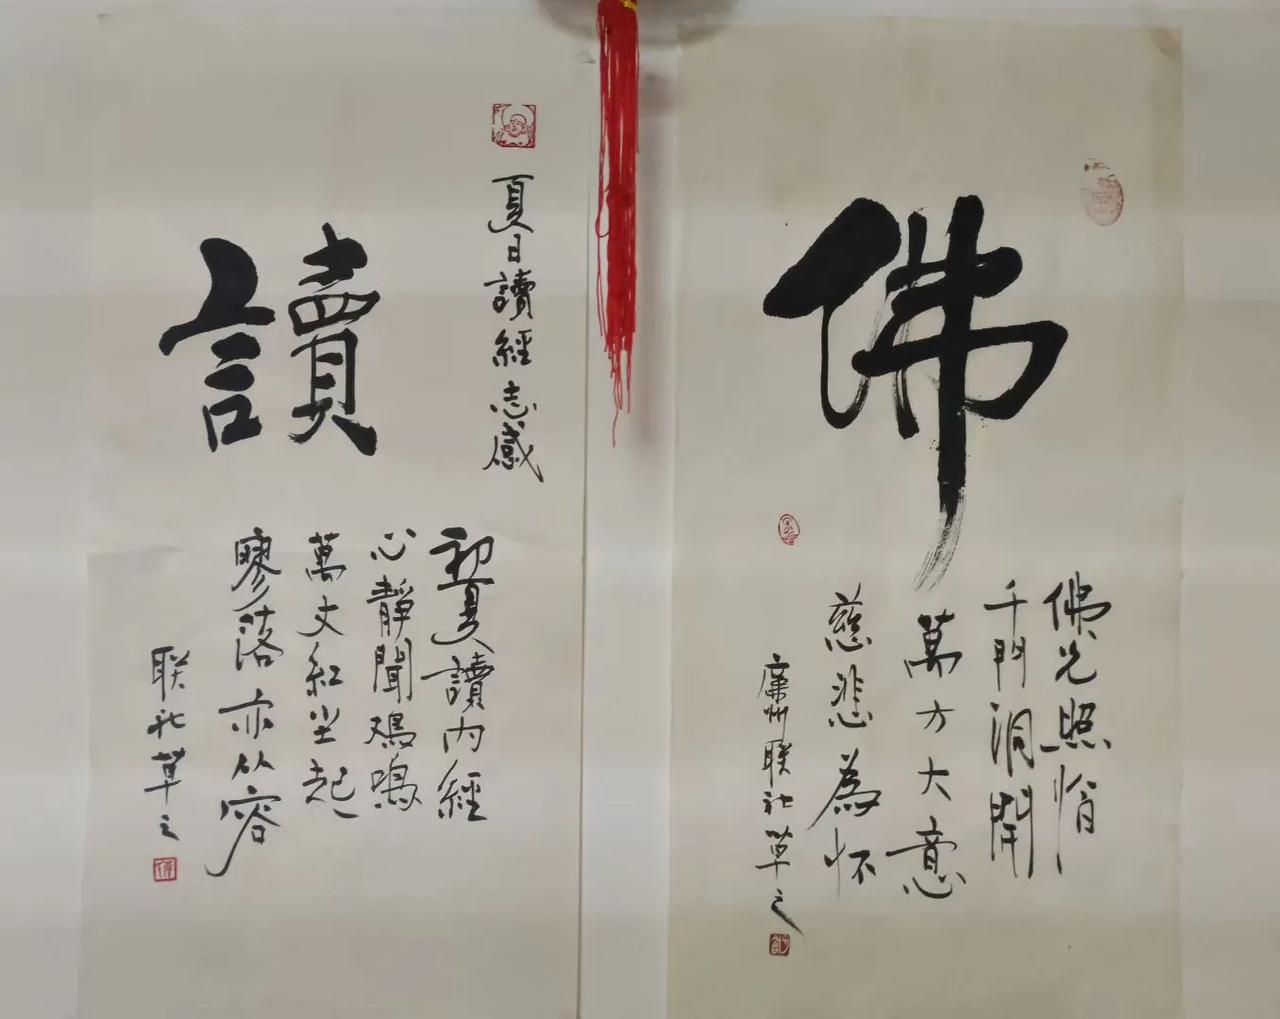 佛
佛光照
千門洞開
萬方大意
慈悲為怀
廉州联社草之
夏日讀經志感
讀
初夏讀内經
心靜聞鸡鳴
萬丈紅尘起
寥落亦从容
联社草之